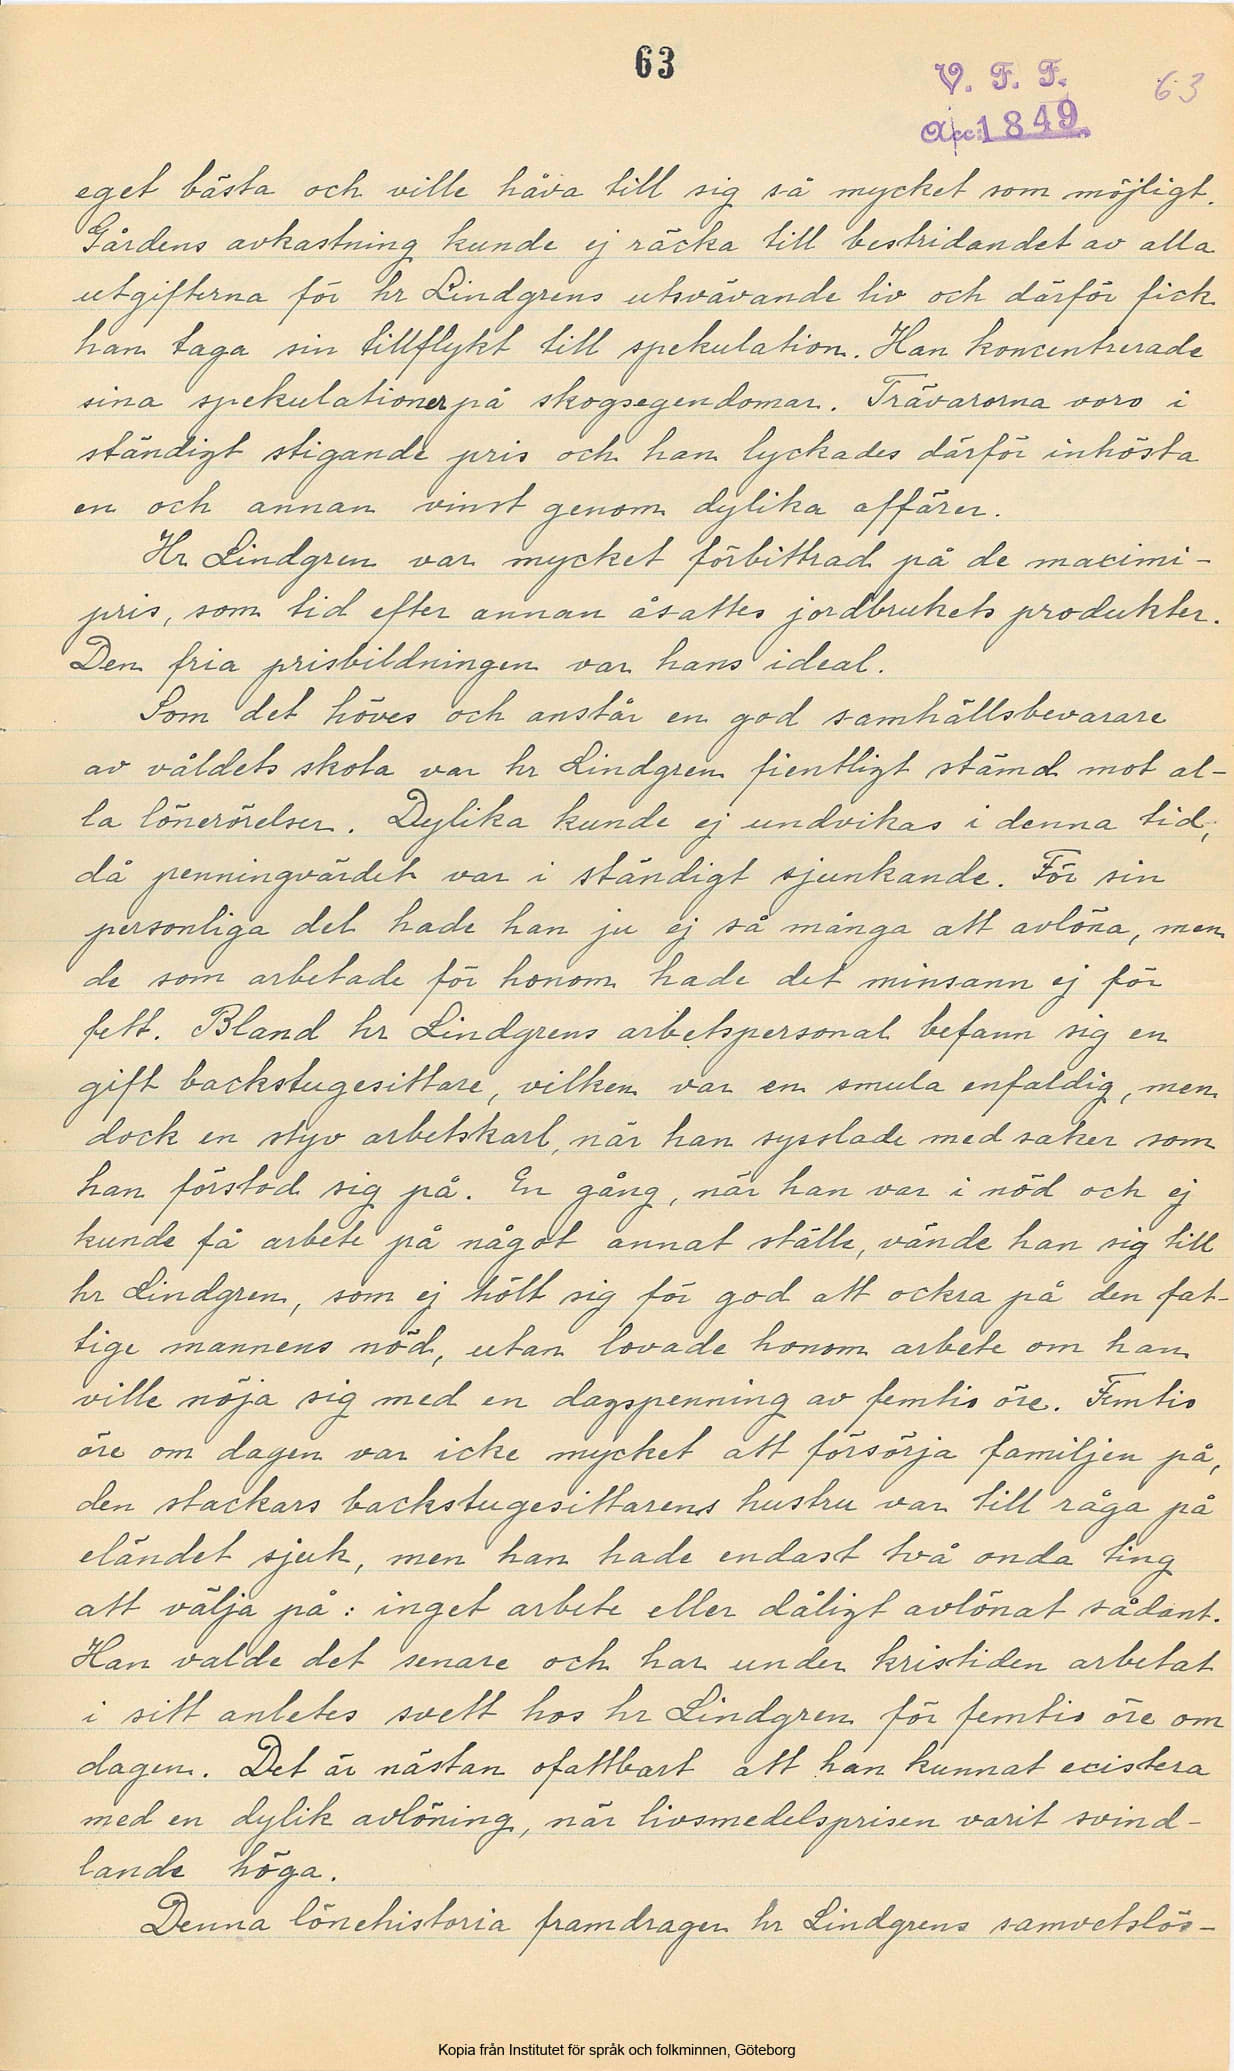 63
V. F. F.
Acc: 1849.
63
eget bästa och ville håva till sig så mycket som möjligt.
Gårdens avkastning kunde ej räcka till bestridandet av alla
utgifterna för hr Lindgrens utsvävande liv och därför fick
han taga sin tillflykt till spekulation. Han koncentrerade
sina spekulationer på skogsegendomar. Trävarorna voro i
ständigt stigande pris och han lyckades därför inhösta
en och annan vinst genom dylika affärer.
Hr Lindgren var mycket förbittrad på de maximi-
pris, som tid efter annan åsattes jordbrukets produkter.
Den fria prisbildningen var hans ideal.
Som det höves och anstår en god samhällsbevarare
av våldets skola var hr Lindgren fientligt stämd mot al-
la lönerörelser. Dylika kunde ej undvikas i denna tid,
då penningvärdet var i ständigt sjunkande. För sin
personliga del hade han ju ej så många att avlöna, men
de som arbetade för honom hade det minsann ej för
fett. Bland hr Lindgrens arbetspersonal befann sig en
gift backstugesittare, vilken var en smula enfaldig, men
dock en styv arbetskarl, när han sysslade med saker som
han förstod sig på. En gång, när han var i nöd och ej
kunde få arbete på något annat ställe, vände han sig till
hr Lindgren, som ej höll sig för god att ockra på den fat-
tige mannens nöd, utan lovade honom arbete om han
ville nöja sig med en dagspenning av femtio öre. Femtio
öre om dagen var icke mycket att försörja familjen på,
den stackars backstugesittarens hustru var till råga på
eländet sjuk, men han hade endast två onda ting
att välja på: inget arbete eller dåligt avlönat sådant.
Han valde det senare och har under kristiden arbetat
i sitt anletes svett hos hr Lindgren för femtio öre om
dagen. Det är nästan ofattbart att han kunnat existera
med en dylik avlöning, när livsmedelsprisen varit svind-
lande höga.
Denna lönehistoria framdrager hr Lindgrens samvetslös-
Kopia från Institutet för språk och folkminnen, Göteborg